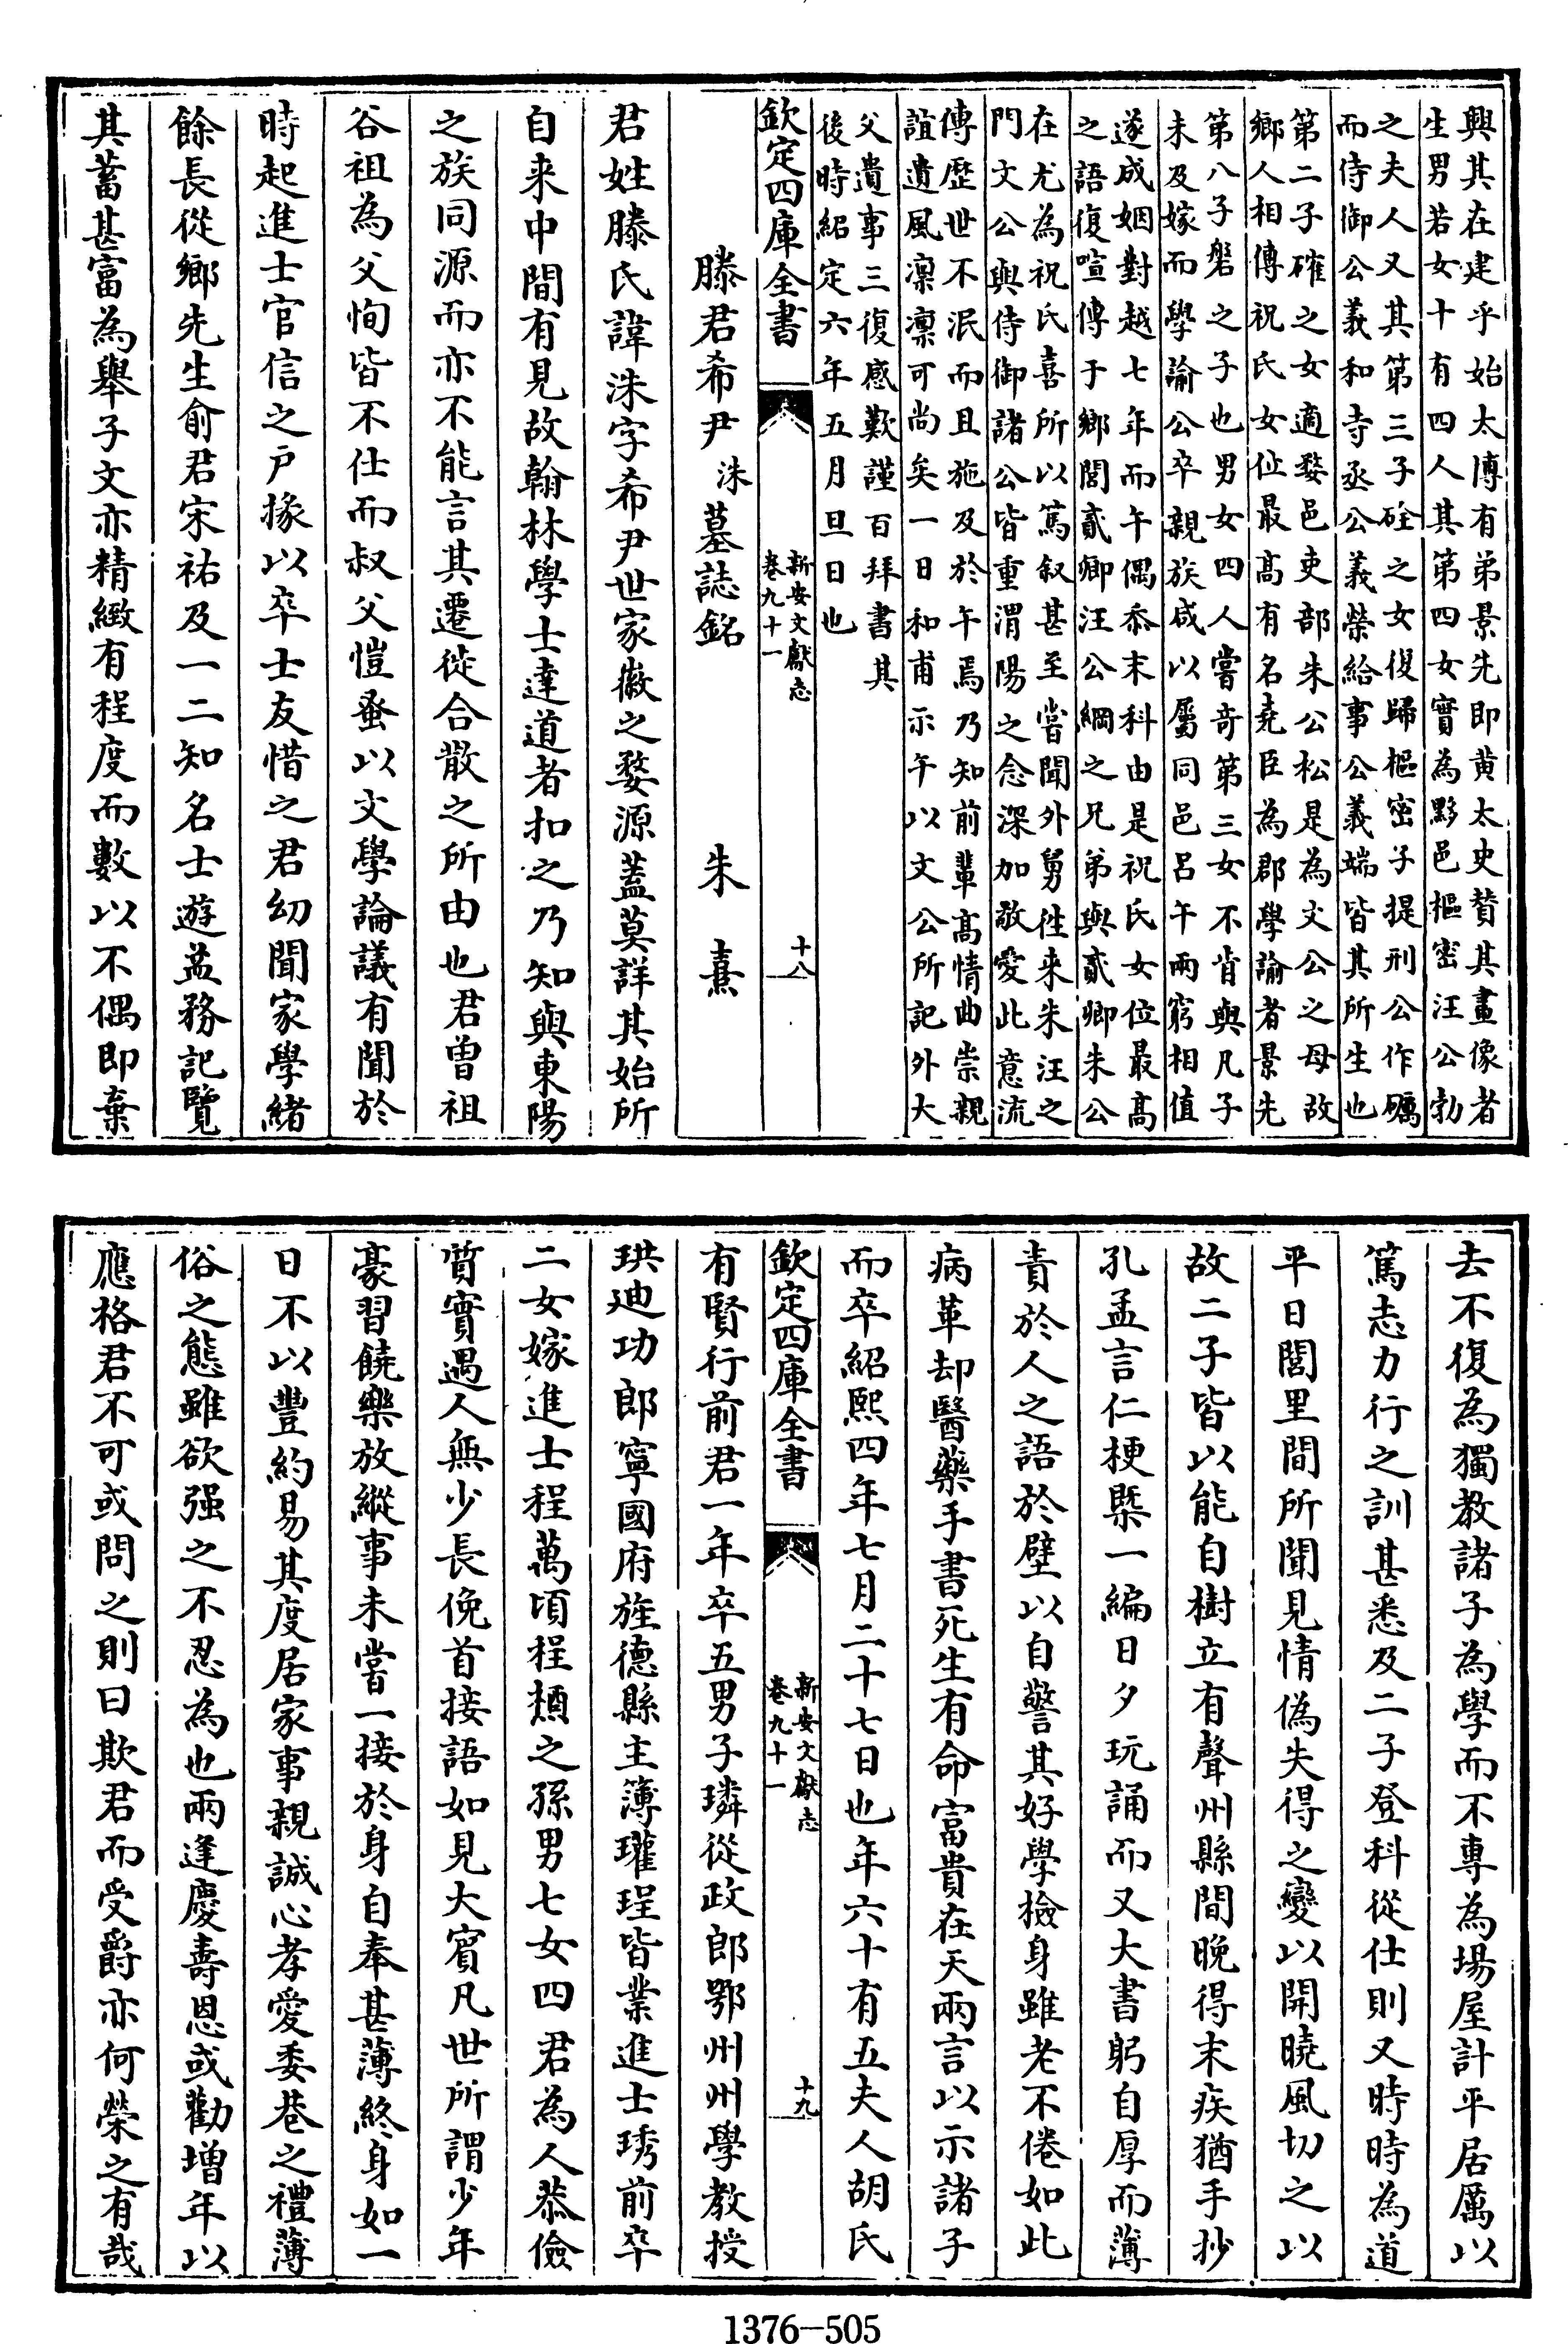 興其在建乎始太博有弟景先即黄太史贊其畫像者
生男若女十有四人其第四女實為黟邑樞密汪公勃
之夫人又其第三子硂之女復歸樞密子提刑公作礪
而侍御公義和寺丞公義榮給事公義端皆其所生也
第二子確之女適婺邑吏部朱公松是為文公之母故
鄉人相傳祝氏女位最高有名堯臣為郡學諭者景先
第八子磐之子也男女四人嘗奇第三女不肯與凡子
未及嫁而學諭公卒親族咸以屬同邑吕午兩窮相值
遂成姻對越七年而午偶忝末科由是祝氏女位最高
之語復喧傳于鄉閭貳卿汪公綱之兄弟與貳卿朱公
在尤為祝氏喜所以篤叙甚至嘗聞外舅徃来朱汪之
門文公與侍御諸公皆重渭陽之念深加敬愛此意流
傳歷世不泯而且施及於午焉乃知前輩高情曲崇親
誼遺風凛凛可尚矣一日和甫示午以文公所記外大
父遺事三復感歎謹百拜書其
後時紹定六年五月旦日也
欽定四庫全書
新安文獻志
卷九十一
十八
滕君希尹洙墓誌銘 朱熹
君姓滕氏諱洙字希尹世家徽之婺源蓋莫詳其始所
自来中間有見故翰林學士達道者扣之乃知與東陽
之族同源而亦不能言其遷徙合散之所由也君曾祖
谷祖為父恂皆不仕而叔父愷蚤以文學論議有聞於
時起進士官信之戶掾以卒士友惜之君幼聞家學緒
餘長從鄉先生俞君宋祐及一二知名士遊益務記覽
其蓄甚富為舉子文亦精緻有程度而數以不偶即棄
去不復為獨教諸子為學而不專為場屋計平居厲以
篤志力行之訓甚悉及二子登科從仕則又時時為道
平日閭里間所聞見情偽失得之變以開曉風切之以
故二子皆以能自樹立有聲州縣間晚得末疾猶手抄
孔孟言仁梗槩一編日夕玩誦而又大書躬自厚而薄
責於人之語於壁以自警其好學檢身雖老不倦如此
病革却醫藥手書死生有命富貴在天兩言以示諸子
而卒紹熙四年七月二十七日也年六十有五夫人胡氏
欽定四庫全書
新安文獻志
卷九十一
十九
有賢行前君一年卒五男子璘從政郎鄂州州學教授
珙迪功郎寧國府旌德縣主簿瓘珵皆業進士琇前卒
二女嫁進士程萬頃程楶之孫男七女四君為人恭儉
質實遇人無少長俛首接語如見大賓凡世所謂少年
豪習饒樂放縱事未嘗一接於身自奉甚薄終身如一
日不以豐約易其度居家事親誠心孝愛委巷之禮薄
俗之態雖欲强之不忍為也兩逢慶壽恩或勸増年以
應格君不可或問之則曰欺君而受爵亦何榮之有哉
1376—505